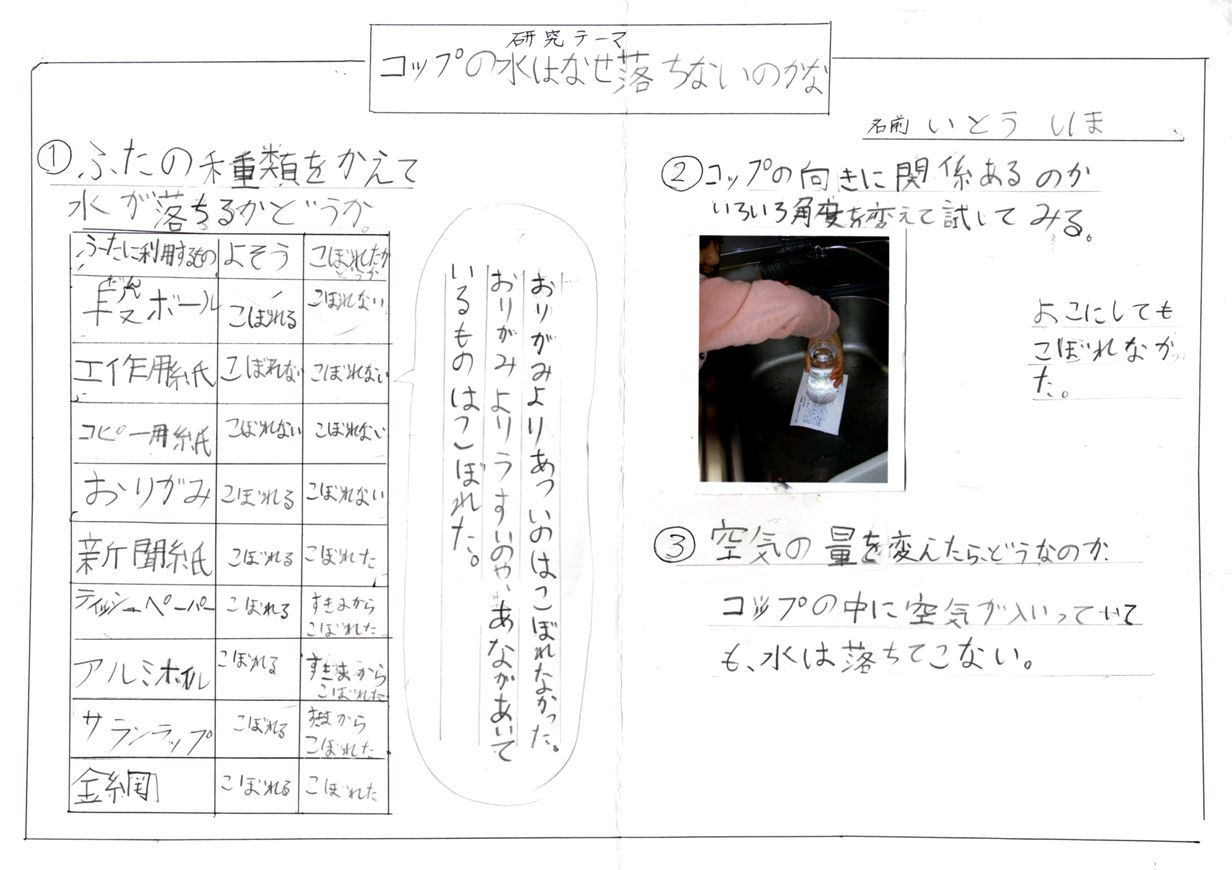 研究テーマ
コップの水はなぜ落ちないのかな
名前 いとう しほ
① ふたの種類をかえて
水が落ちるかどうか。
ふたに利用するもの よそう こぼれたかどうか
段ボール だん こぼれる こぼれない
工作用紙 こぼれない こぼれない
コピー用紙 こぼれない こぼれない
おりがみ こぼれる こぼれない
新聞紙 こぼれる こぼれた
ティッシュペーパー こぼれる すきまからこぼれた
アルミホイル こぼれる すき末からこぼれた
サランラップ こぼれる すきまからこぼれた
金網 こぼれる こぼれた
おりがみよりあついのはこぼれなかった。
おりがみよりうすいのや、あながあいて
いるものはこぼれた。
② コップの向きに関係あるのか
いろいろ角度を変えて試してみる。
よこにしても
こぼれなかっ
た。
③ 空気の量を変えたら、どうなのか
コップの中に空気が入っていて
も、水は落ちてこない。